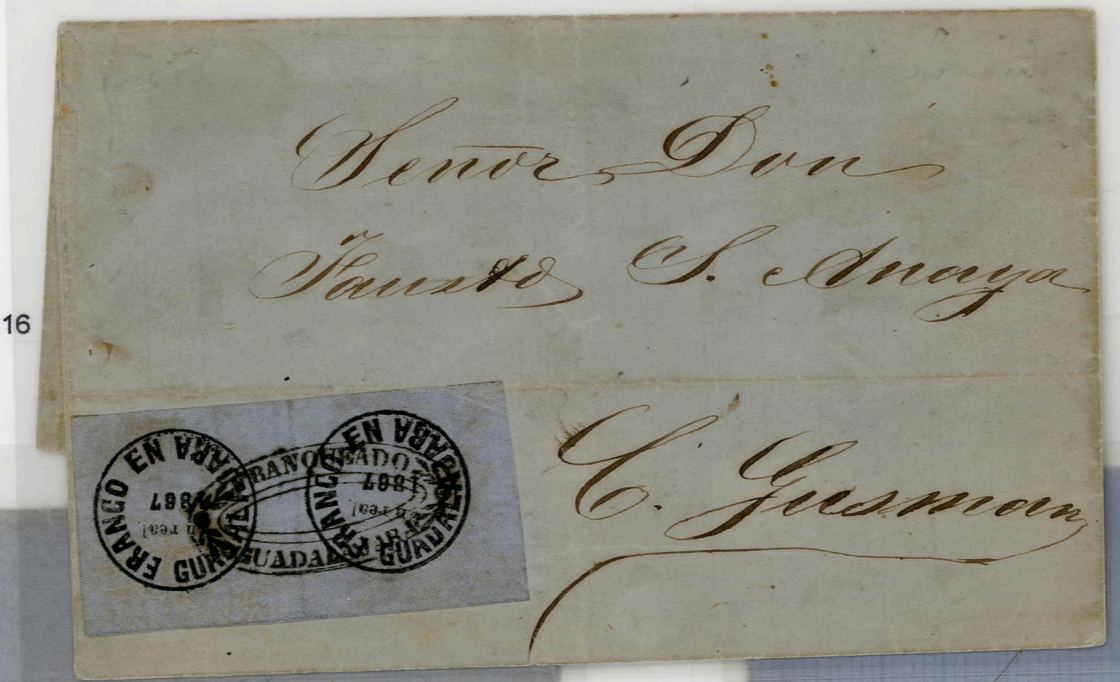 Señor Don
Fausto S. Anaya
16
FRANCO EN GUADALAJARA
1867
un real
FRANQUEADO
GUADALAJARA
FRANCO EN GUADALAJARA
1867
un real
C. Gusman